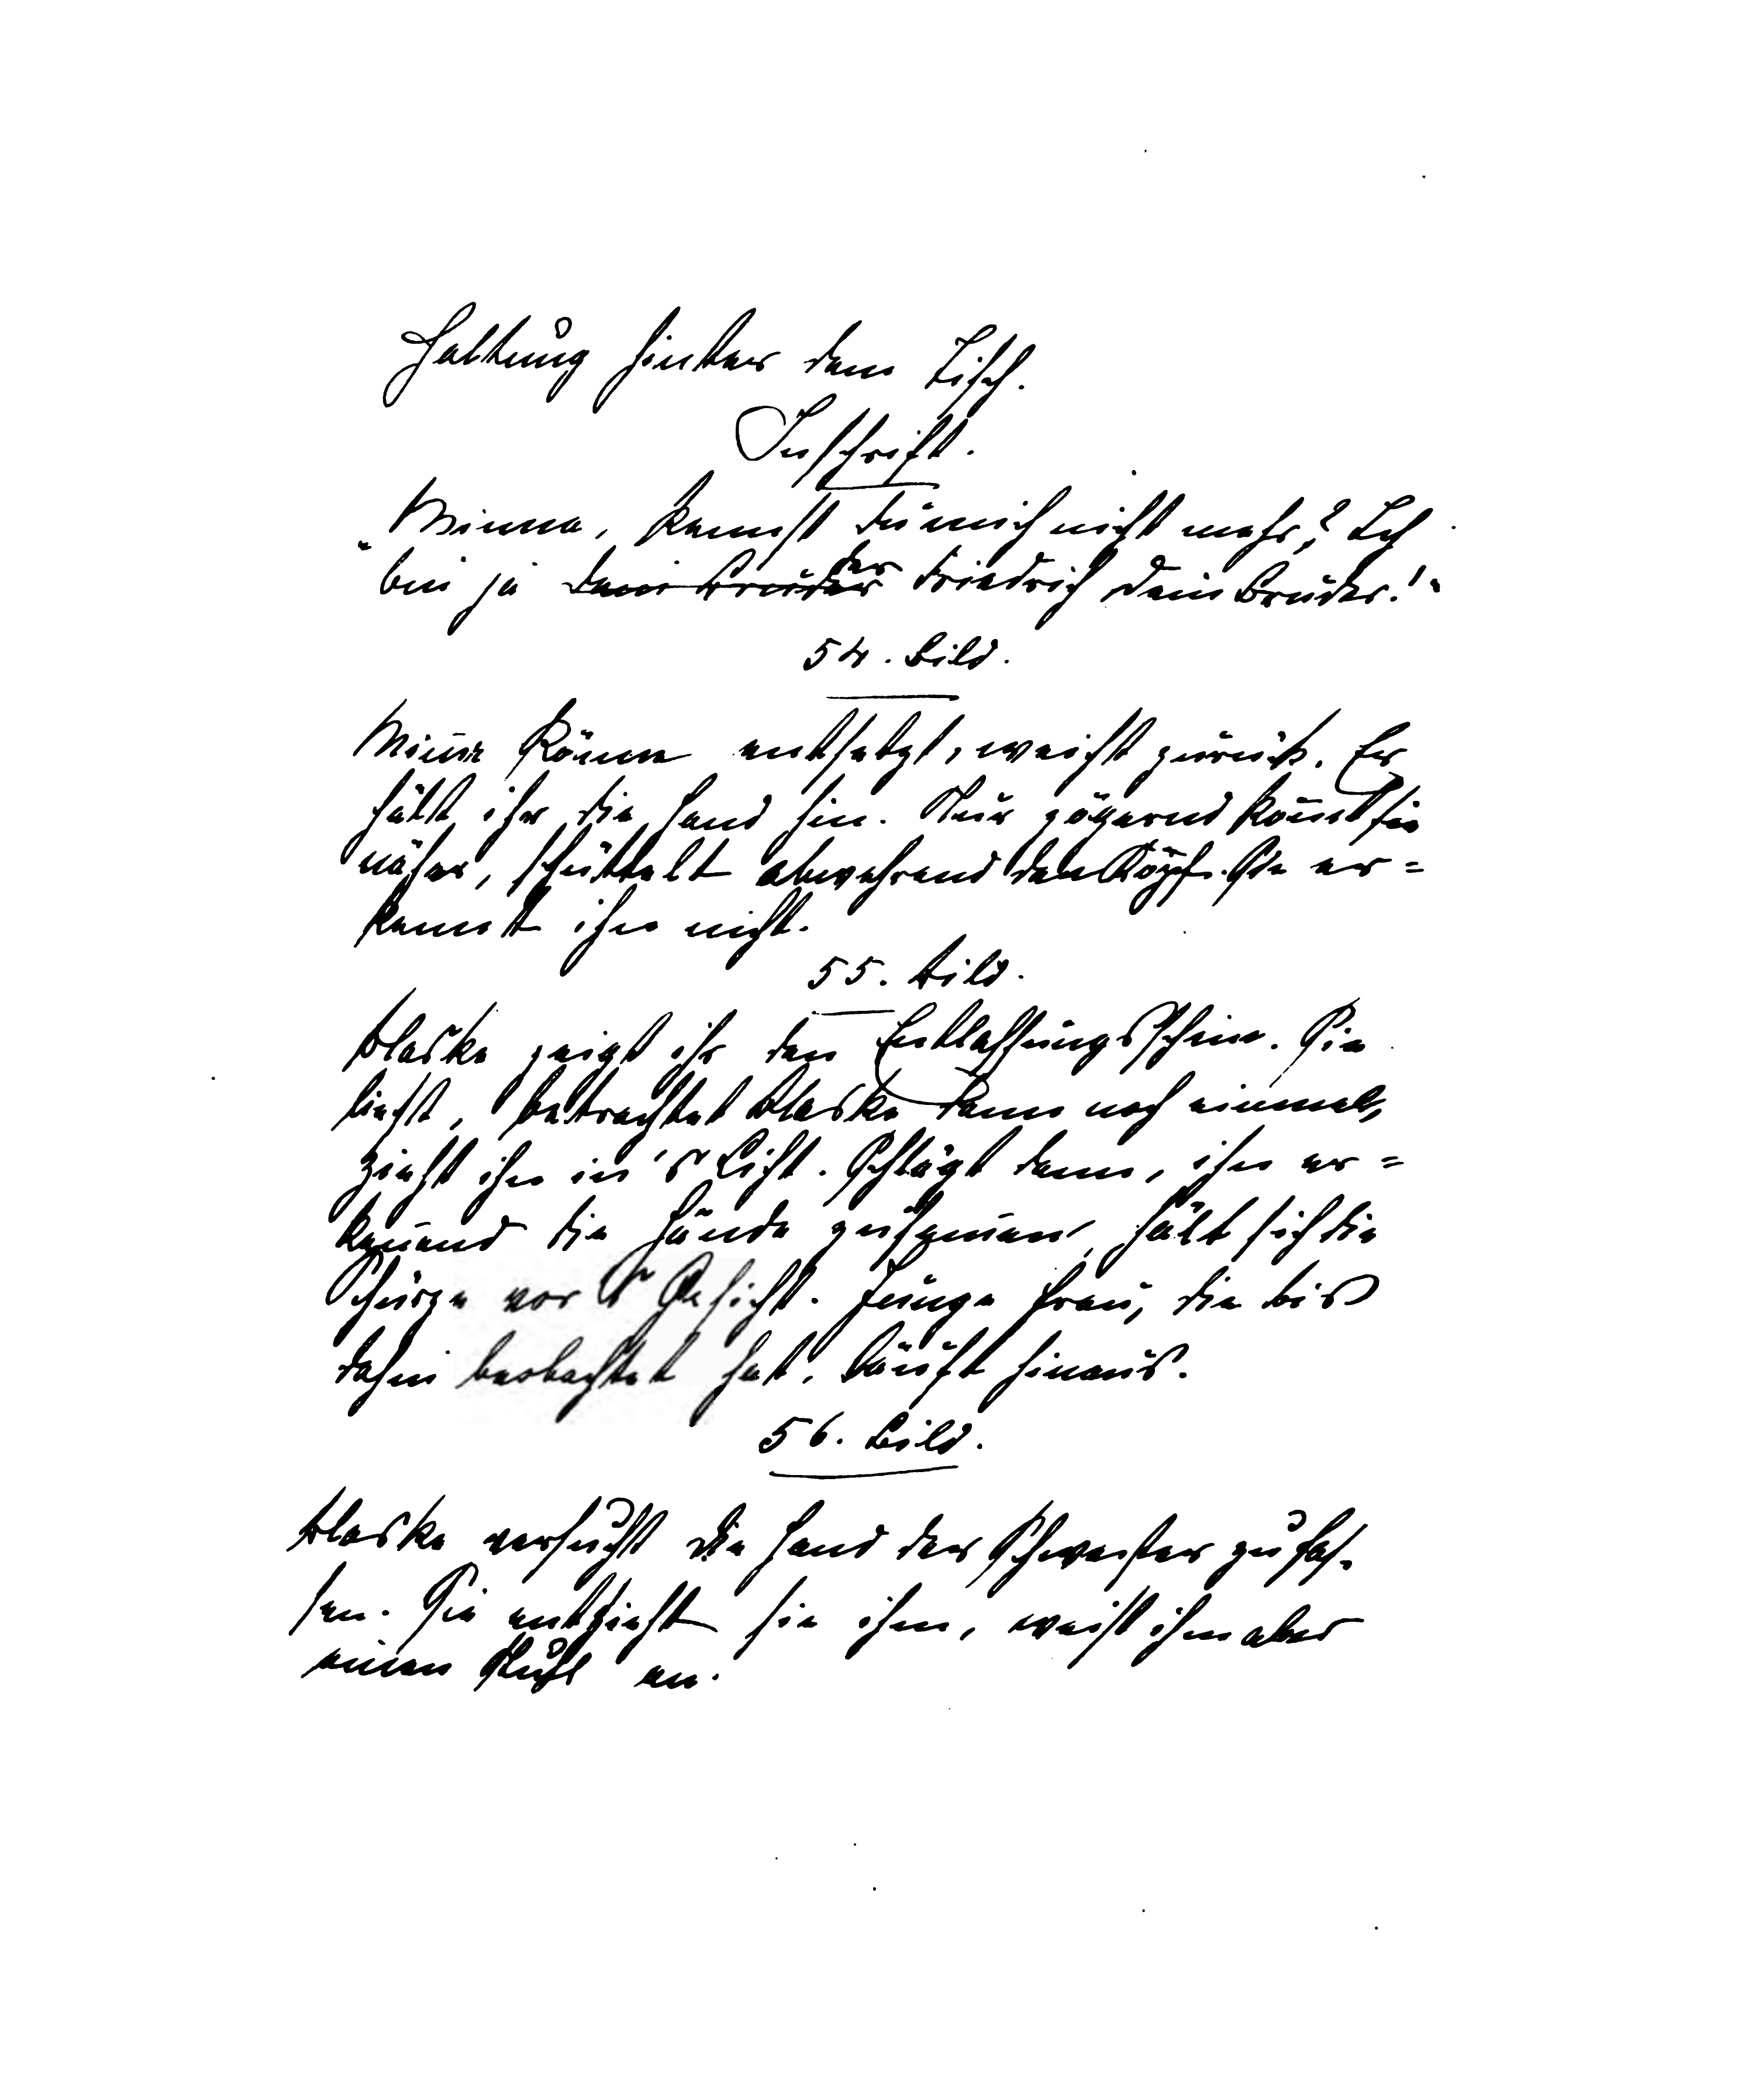 Haltung hinter dem Tisch.
Inschrift.
„Minna, kennst Du mich nicht mehr? Ich
bin ja dein Bruder der Friedrich Dein Bruder!"
54. Bild.
Minna entsetzt, weicht zurück. Er
hält ihr die Hand hin. Nur zögernd kom̅t sie
näher, schüttelt abwehrend den Kopf. Sie er=
kennt ihn nicht.
55. Bild.
Blaske zeigt ihr den Entlassungsschein. Sie
liest, betrachtet Blaske dann noch einmal,
zieht ihn in's Licht. Schlägt dann, ihn er=
ken̅end die Hände zusam̅en, hält sich die
Schürze vor's Gesicht. Junge Frau, die bis
dahin beobachtet hat, läuft hinaus.
56. Bild.
Blaske versucht die Hand der Schwester zu fas-
sen. Sie entzieht sie ihm, weist ihm aber
einen Stuhl an.